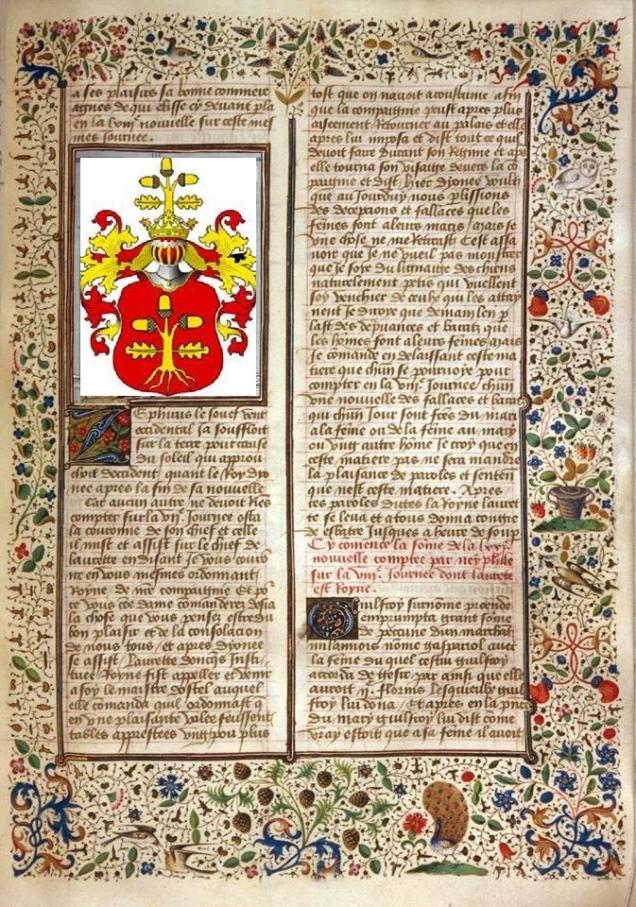 a ses plaisirs sa bonne commere
de qui disse cy devant pla
en la nouvelle sur ceste mes
mes journee.
Zephirus le souef vent
occidental ja souffloit
sur la terre pour cause
du soleil qui approu
choit doccident quant le Roy dyo
nee apres la fin de sa nouvelle
car aucun autre ne devoit mes
compter sur la vije Journee osta
la couronne de son chief et celle
il mist et assist sur le chief de
laurette en disant Je vous couro
ne en vous mesmes ordonnant
Royne de nre compaignie Et po
ce vous coe dame comanderes desia
la chose que vous penses estre du
bon plaisir et de la consolacion
de nous tous, et apres dyonee
se assist Laurette doncqs
tuee Royne fist appeller et venir
a soy le maistre dostel auquel
elle comanda quil ordonnast q
en une plaisante valee feussent
tables apprestees ung pou plus
tost que on navoit acoustume afin
que la compaignie peust apres plus
aiseement Retourner au palais et elle
apres lui imposa et dist tout ce quil
devoit faire durant son Regime et apres
elle tourna son visaige devers la co
paignie et dist hier dyonee voult
que au Jourduy nous
des decepcions et fallaces que les
femes font a leurs maris mais se
une chose ne me Retraist Cest assa
voir que je ne vueil pas monstrer
que je soye du lignaige des chiens
naturelement petis qui veullent
soy venchier de ceulx qui les
nent Je diroye que demain len p
last des et baratz que
les homes font a leurs femes mais
Je comande en delaissant ceste ma
tiere que chun se pourvoye pour
compter en la viije Journee chun
une nouvelle des fallaces et barat
qui chun Jour sont fces du mari
a la feme ou de la feme au mary
ou ung autre home Je croy que en
ceste matiere pas ne sera maindre
la plaisance de paroles et senten
que nest ceste matiere. Apres
ces paroles dittes la Royne lauret
te se leva et a tous donna congie
de esbatre Jusques a heure de soup
Cy comence la some de la
nouvelle comptee par neyphille
sur la viije Journee dont laurette
est Royne.
Guilfroy surnome
emprumpta grant some
de pecune dun marchat
milannois nome gaspariol avec
la feme du quel cestui guilfroy
accorda de gesir par ainsi que elle
auroit florins lesquelx guil
froy lui dona Et apres en la
du mary guilfroy lui dist come
vray estoit que a sa feme il avoit